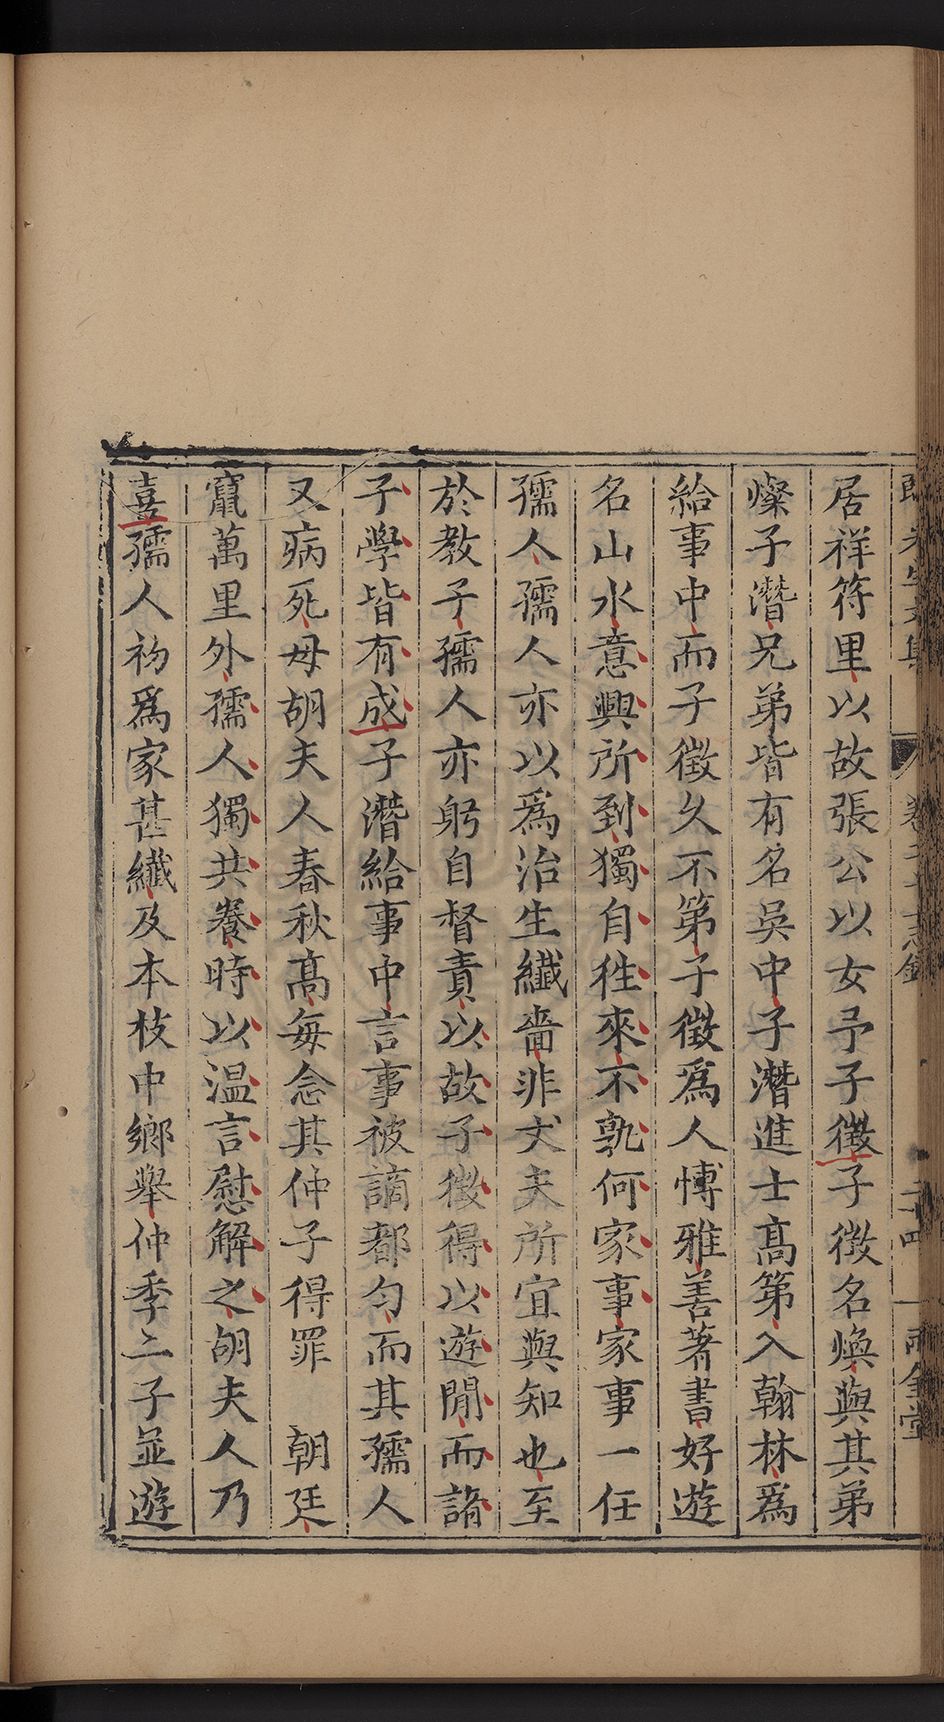 居祥符里以故張公以女予子徵子徵名煥與其弟
燦子潛兄弟皆有名吳中子潛進士髙第入翰林爲
給事中而子徵久不第子徵爲人博雅善著書好遊
名山水意興所到獨自徃來不孰何家事家事一任
孺人孺人亦以爲治生纖嗇非丈夫所宜與知也至
於教子孺人亦躬自督責以故子徵得以遊閒而諸
子學皆有成子潛給事中言事被謫都勻而其孺人
又病死母胡夫人春秋髙每念其仲子得罪　朝廷
竄萬里外孺人獨共養時以温言慰解之胡夫人乃
喜孺人初爲家甚纖及本枝中鄉舉仲季二子並遊